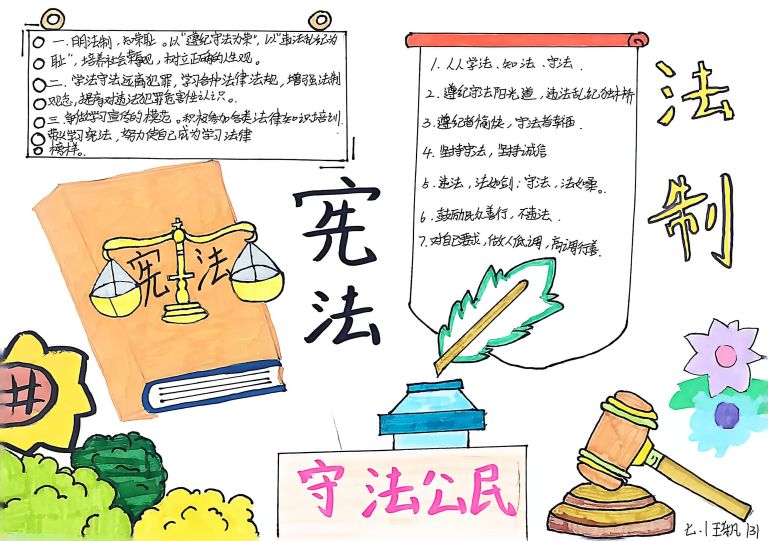 一.明法制,知荣耻。以"遵纪守法为荣",以"违法乱纪为
耻",培养社会荣辱观,树立正确的人生观。
二、学法守法远离犯罪,学习各种法律法规,增强法制
观念,提高对违法犯罪危害性认识。
三.争做学习宣传的模范。积极参加各类法律知识培训.
带头学习宪法,努力使自己成为学习法律
榜样。
宪法
宪法
1.人人学法、知法、守法.
2.遵纪守法阳光道,违法乱纪独木桥
3.遵纪者愉快,守法者幸福
4.坚持守法,坚持诚信
5.违法,法如剑;守法,法如桑。
6.鼓励民众善行,不违法.
7.对自己要求,做人低调,高调行善.
法制
守法公民
七.1 王 131